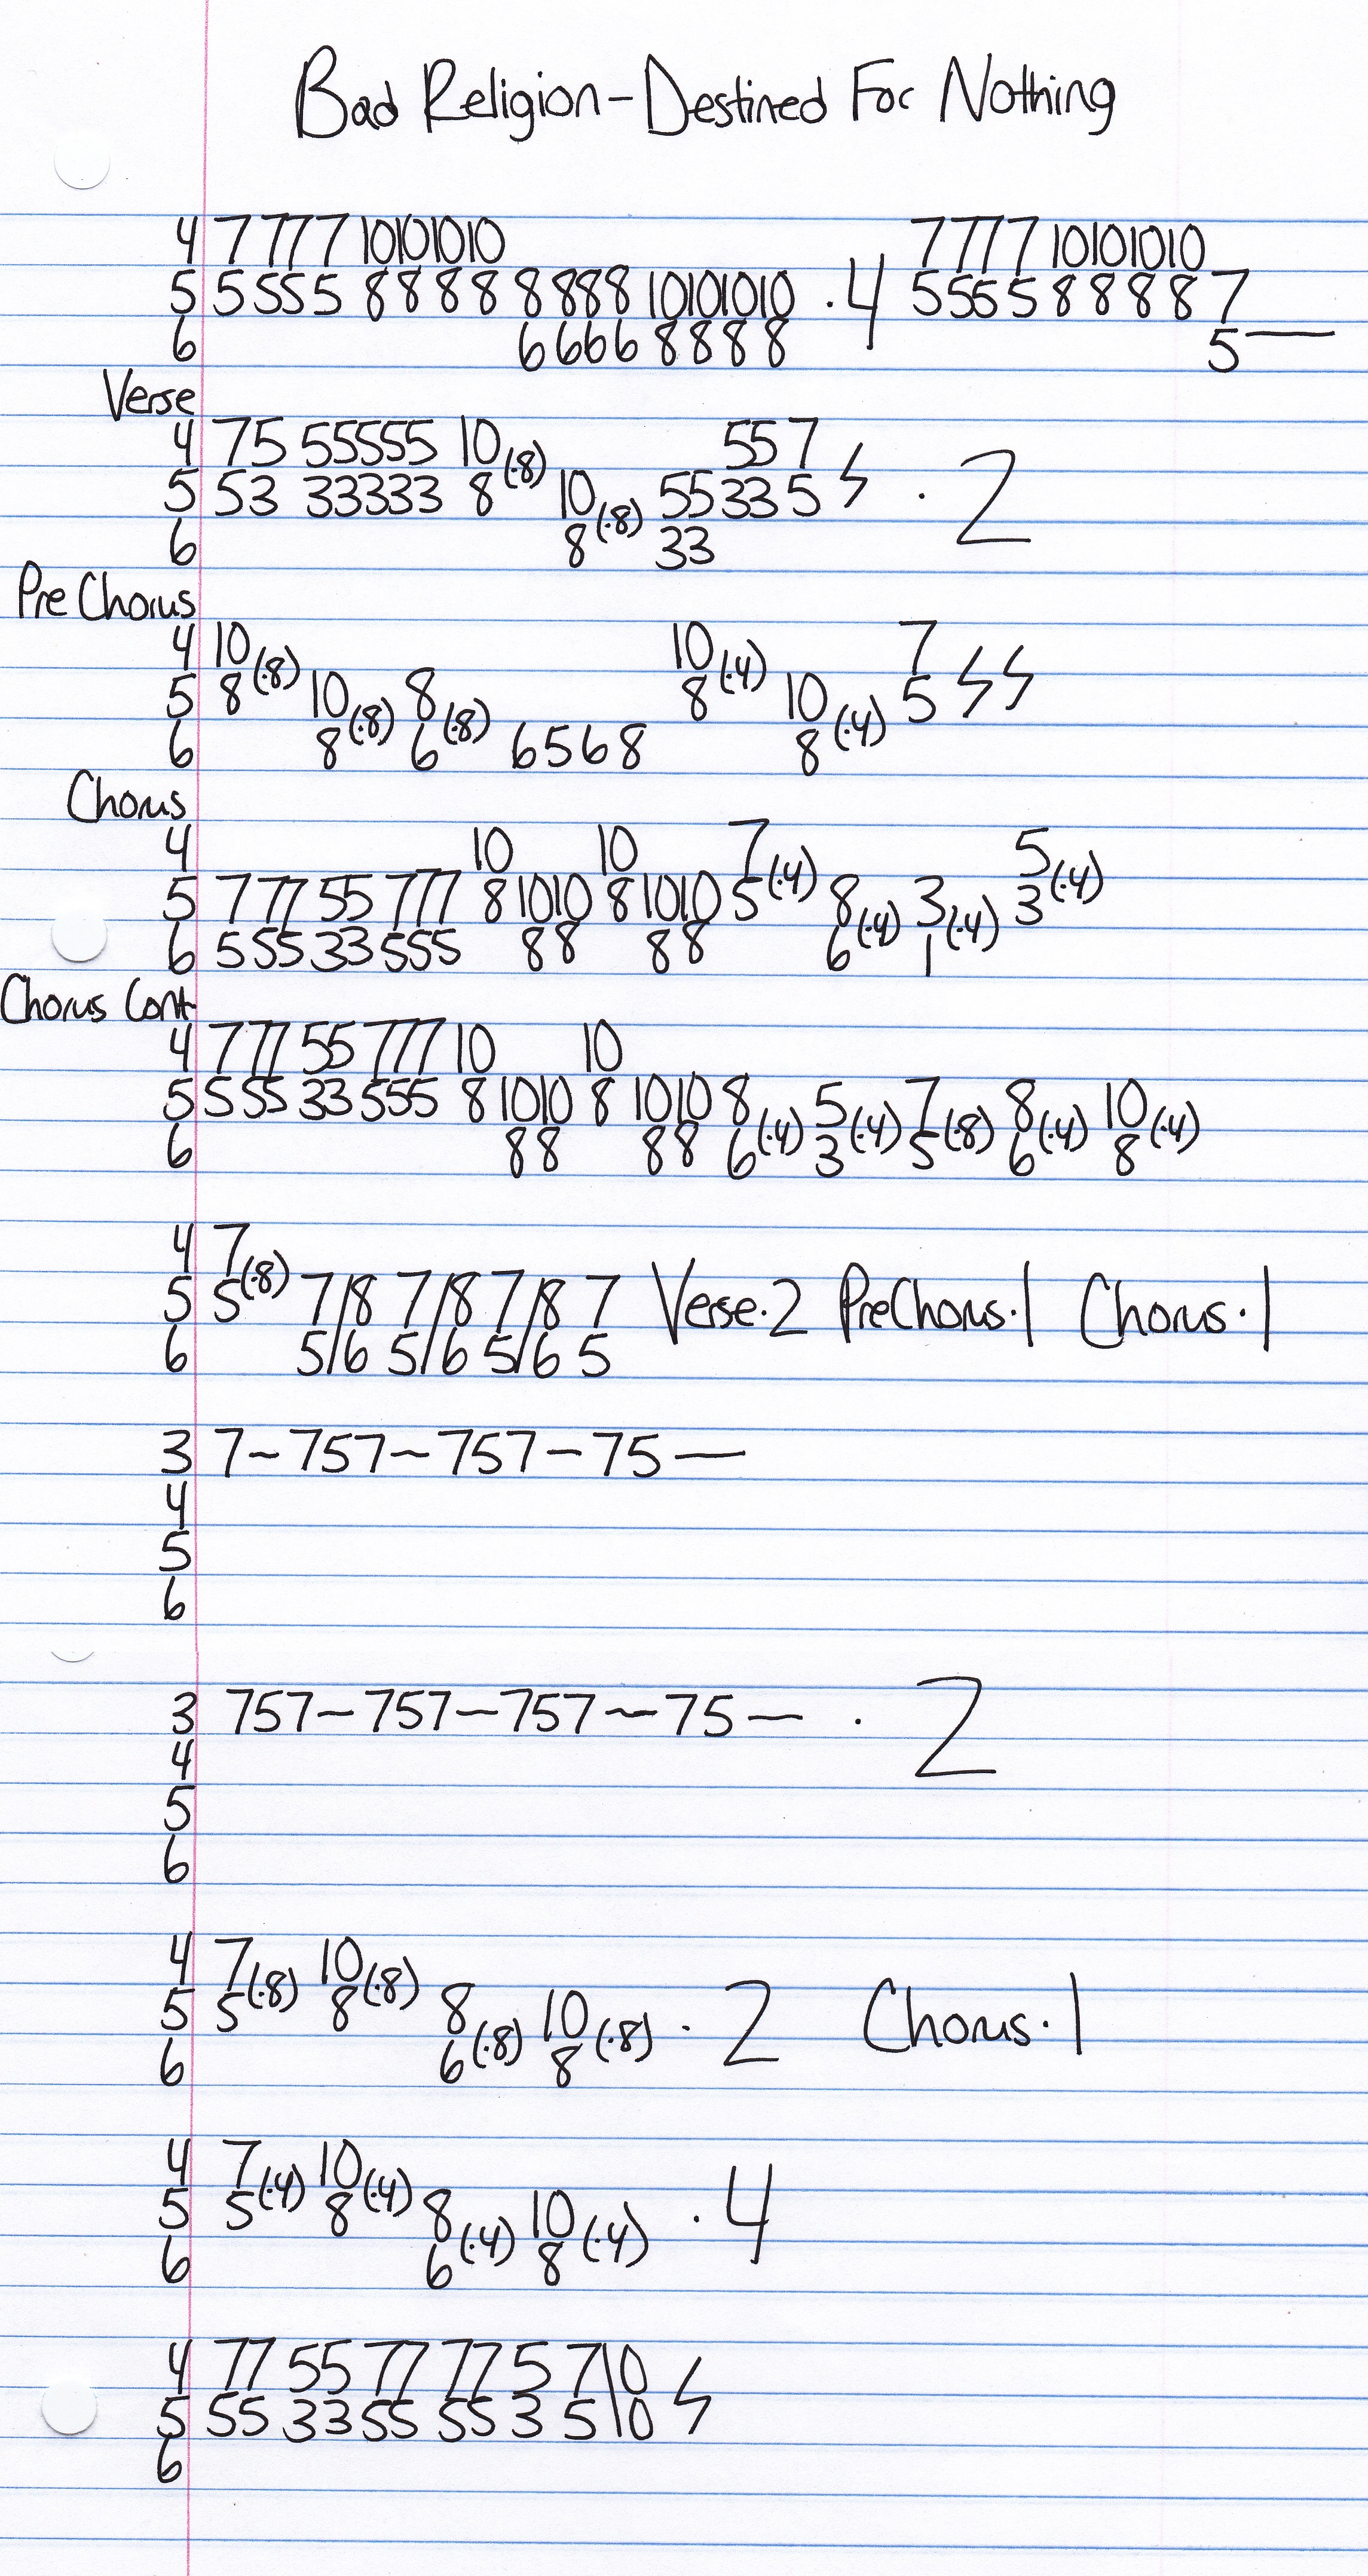 Bad Religion - Destined For Nothing
4 7 7 7 7 10 10 10 10 7 7 7 7 10 10 10 10
5 5 5 5 5 8 8 8 8 8 8 8 8 10 10 10 10 · 4 5 5 5 5 8 8 8 8 7
6 6 6 6 6 8 8 8 8 5 —
Verse
4 7 5 5 5 5 5 5 10 (·8) 5 5 7
5 5 3 3 3 3 3 3 8 10 (·8) 5 5 3 3 5 · 2
6 8 3 3
Pre Chorus
4 10 (·8) 10 (·4) 7
5 8 10 (·8) 8 (·8) 8 10 (·4) 5
6 8 6 6 5 6 8 8
Chorus
4 10 10 7 (·4) 5 (·4)
5 7 7 7 5 5 7 7 7 8 10 10 8 10 10 5 8 (·4) 3 (·4) 3
6 5 5 5 3 3 5 5 5 8 8 8 8 6 1
Chorus Cont
4 7 7 7 5 5 7 7 7 10 10
5 5 5 5 3 3 5 5 5 8 10 10 8 10 10 8 (·4) 5 (·4) 7 (·8) 8 (·4) 10 (·4)
6 8 8 8 8 6 3 5 6 8
4 7 (·8)
5 5 7/8 7/8 7/8 7 Verse·2 PreChorus·1 Chorus·1
6 5/6 5/6 5/6 5
3 7~757~757-75—
4
5
6
3 757-757-757~75— · 2
4
5
6
4 7 (·8) 10 (·8)
5 5 8 8 (·8) 10 (·8) · 2 Chorus·1
6 6 8
4 7 (·4) 10 (·4)
5 5 8 8 (·4) 10 (·4) · 4
6 6 8
4 7 7 5 5 7 7 7 7 5 7\10
5 5 5 3 3 5 5 5 5 3 5\10
6